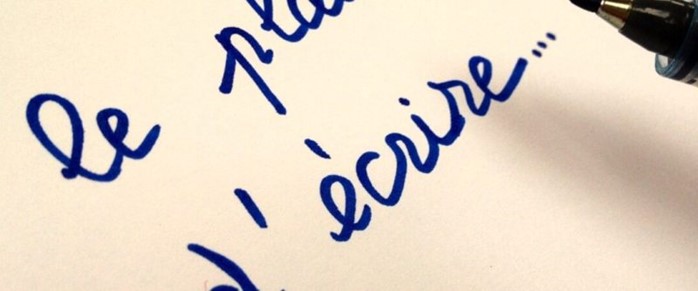 le pla
d'écrire...